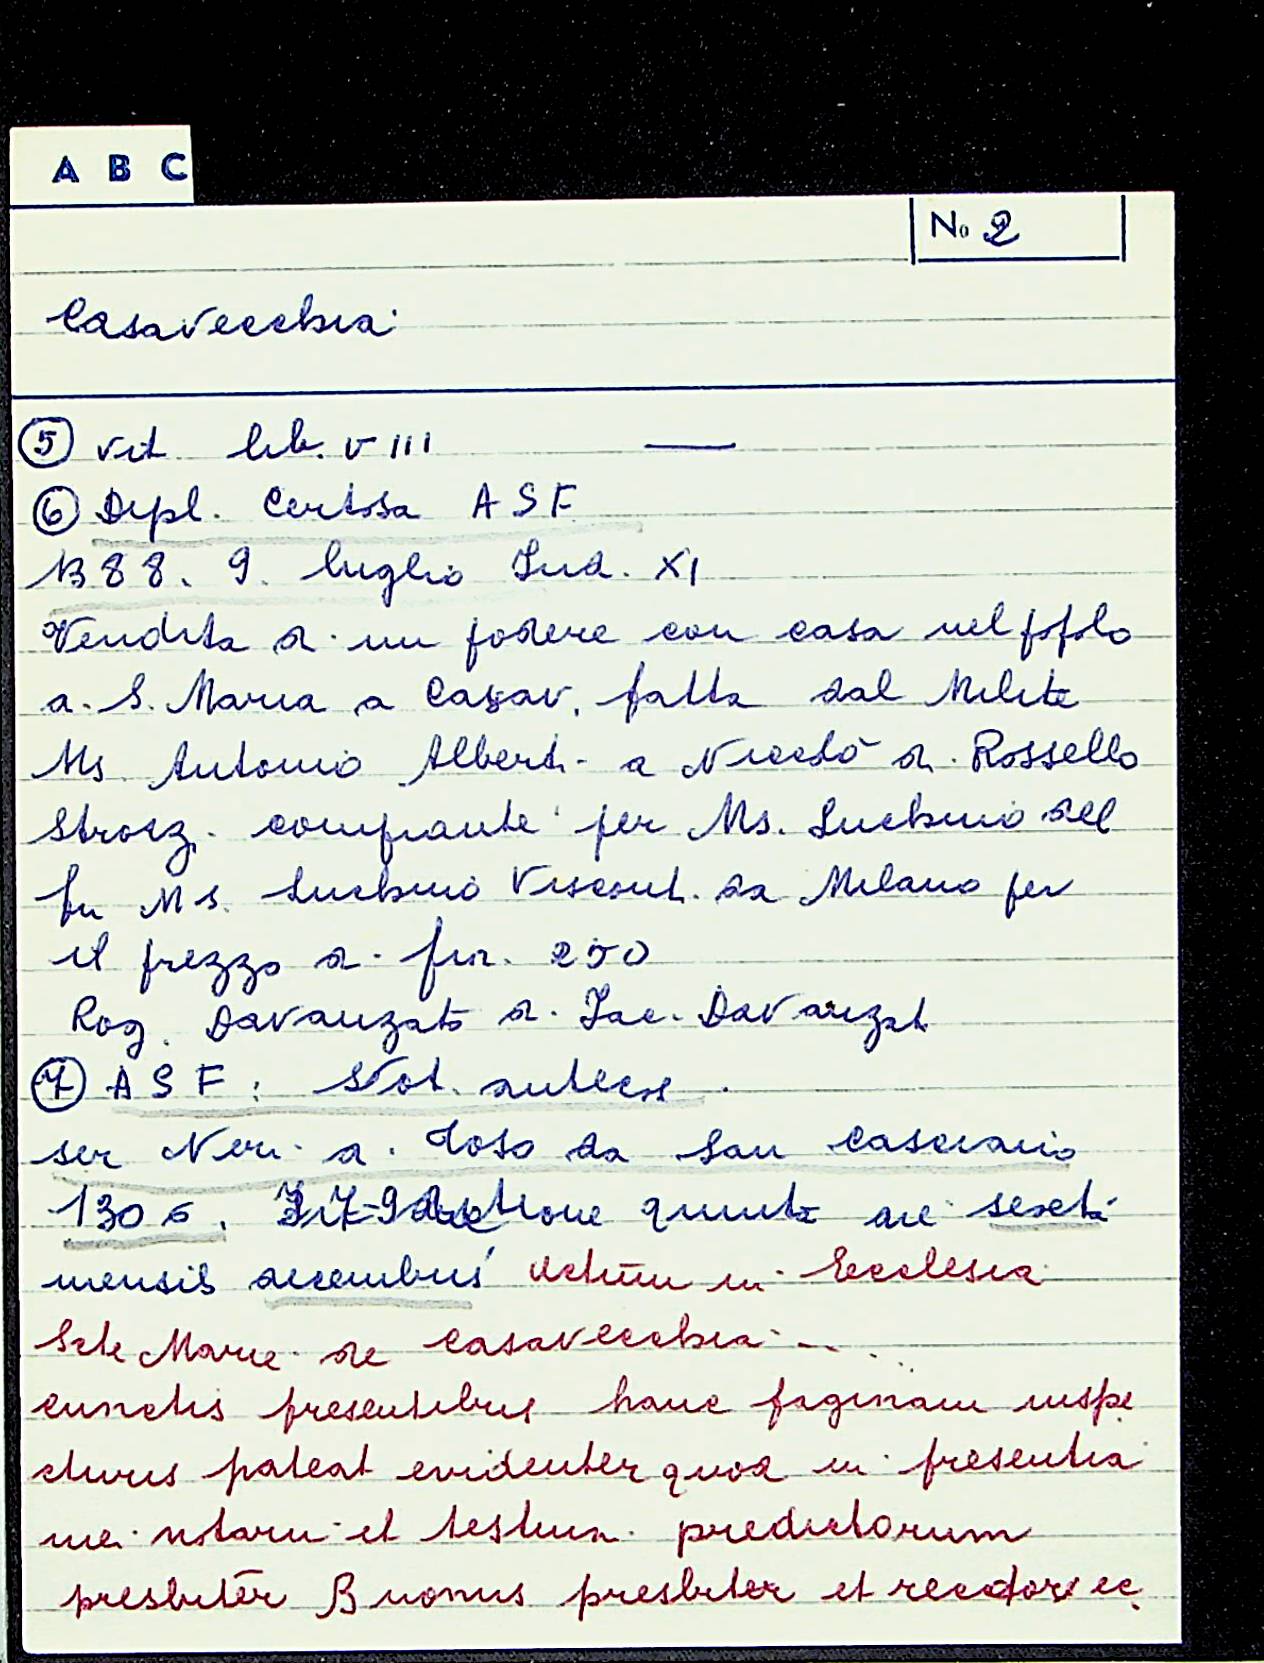 A B C
No 2
Casavecchia
5 vit lib. VIII —
6 Dipl. Certosa ASF
1388. 9. luglio Ind. XI
Vendita di un podere con casa nel popolo
di S. Maria a Casav. fatta dal Milite
Ms. Antonio Alberti a Niccolò di Rossello
Strozzi comprante per Ms. Luchino del
fu Ms. Luchino Visconti da Milano per
il prezzo di fior. 250
Rog. Davanzato di Jac. Davanzati
7 ASF: Not. antecos
ser Neri di Toso da San Casciano
1306. Indictione quinta die sexta
mensis decembris Actum in Ecclesia
Scte Marie de Casavecchia ...
cunctis presentibus hanc paginam inspe
cturis pateat evidenter quod in presentia
mei notarii et testium predictorum
presbiter Buonus presbiter et rector ec.